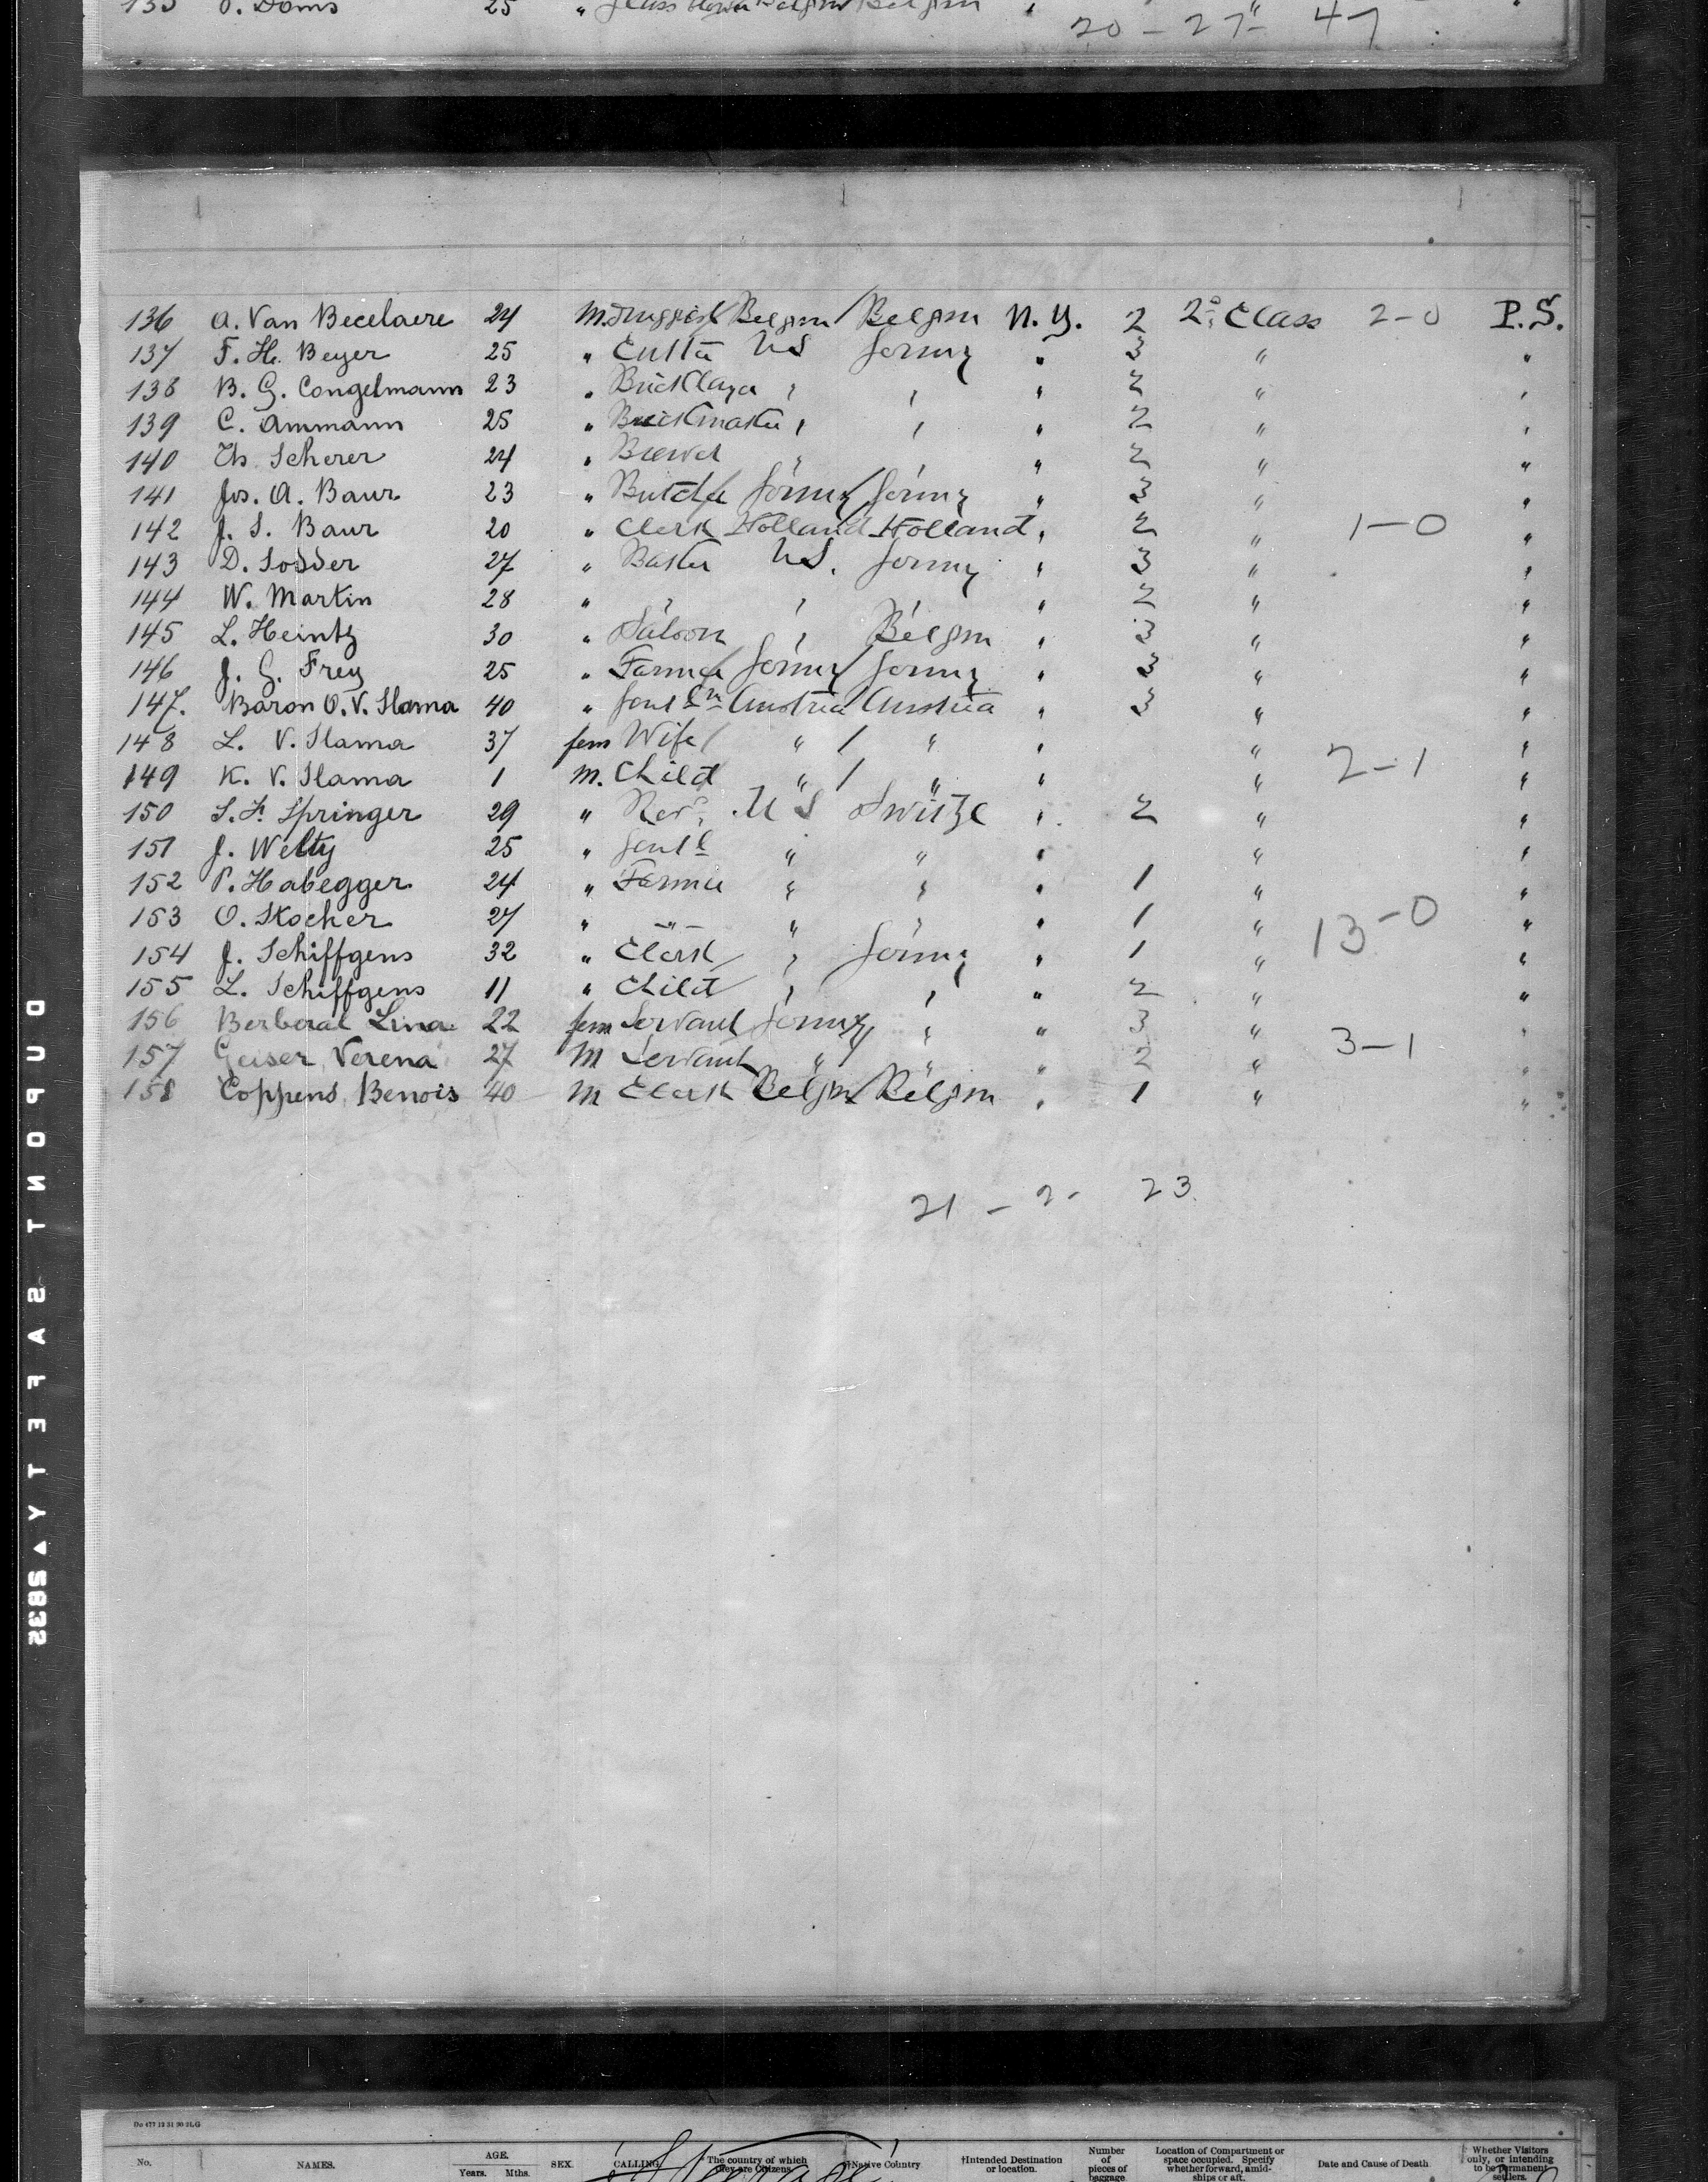 135 . Doms 25 " Glass blower Belgim Belgim
20 - 27 - 47
136 A. Van Becelaere 24 M. Druggist Belgim / Belgim N. Y. 2 2d Class 2-0 P. S.
137 F. H. Beyer 25 " US Germy " 3 " "
138 B. G. Congelmann 23 " Bricklayer " " " 2 " "
139 C. Ammann 25 " Brickmaker " " " 2 " "
140 Th. Scherer 24 " Brewer " " " 2 " "
141 Jos. A. Baur 23 " Butcher Germy / Germy " 3 " "
142 J. S. Baur 20 " Clerk Holland Holland " 2 " 1-0 "
143 D. Sodder 27 " Baker US. Germy " 3 " "
144 W. Martin 28 " " " " 2 " "
145 L. Heintz 30 " Saloon " Belgim " 3 " "
146 J. G. Frey 25 " Farmer Germy / Germy " 3 " "
147. Baron O. V. Slama 40 " Gentln Austria / Austria " 3 " "
148 L. V. Slama 37 fem Wife / " / " " " "
149 K. V. Slama 1 m. Child " / " " " 2-1 "
150 S. F. Springer 29 " Revd. U S Switze " 2 " "
151 J. Welty 25 " Gentl " " " " "
152 P. Habegger 24 " Farmer " " " 1 " "
153 O. Stocker 27 " — " — " " " 1 " 13-0 "
154 J. Schiffgens 32 " Clerk " Germy " 1 " "
155 L. Schiffgens 11 " Child " " " 2 " "
156 Berberat Lina 22 fem Servant Germy / " " 3 " "
157 Geiser Verena 27 M Servant " / " " 2 " 3-1 "
158 Coppens Benois 40 M Clerk Belgim / Belgim " 1 " "
21 - 2 - 23
DUPONT SAFETY ▲ 2835
No. NAMES. AGE. Years. Mths. SEX. CALLING. The country of which they are Citizens. †Native Country †Intended Destination or location. Number of pieces of baggage Location of Compartment or space occupied. Specify whether forward, amidships or aft. Date and Cause of Death Whether Visitors only, or intending to be permanent settlers.
Steerage